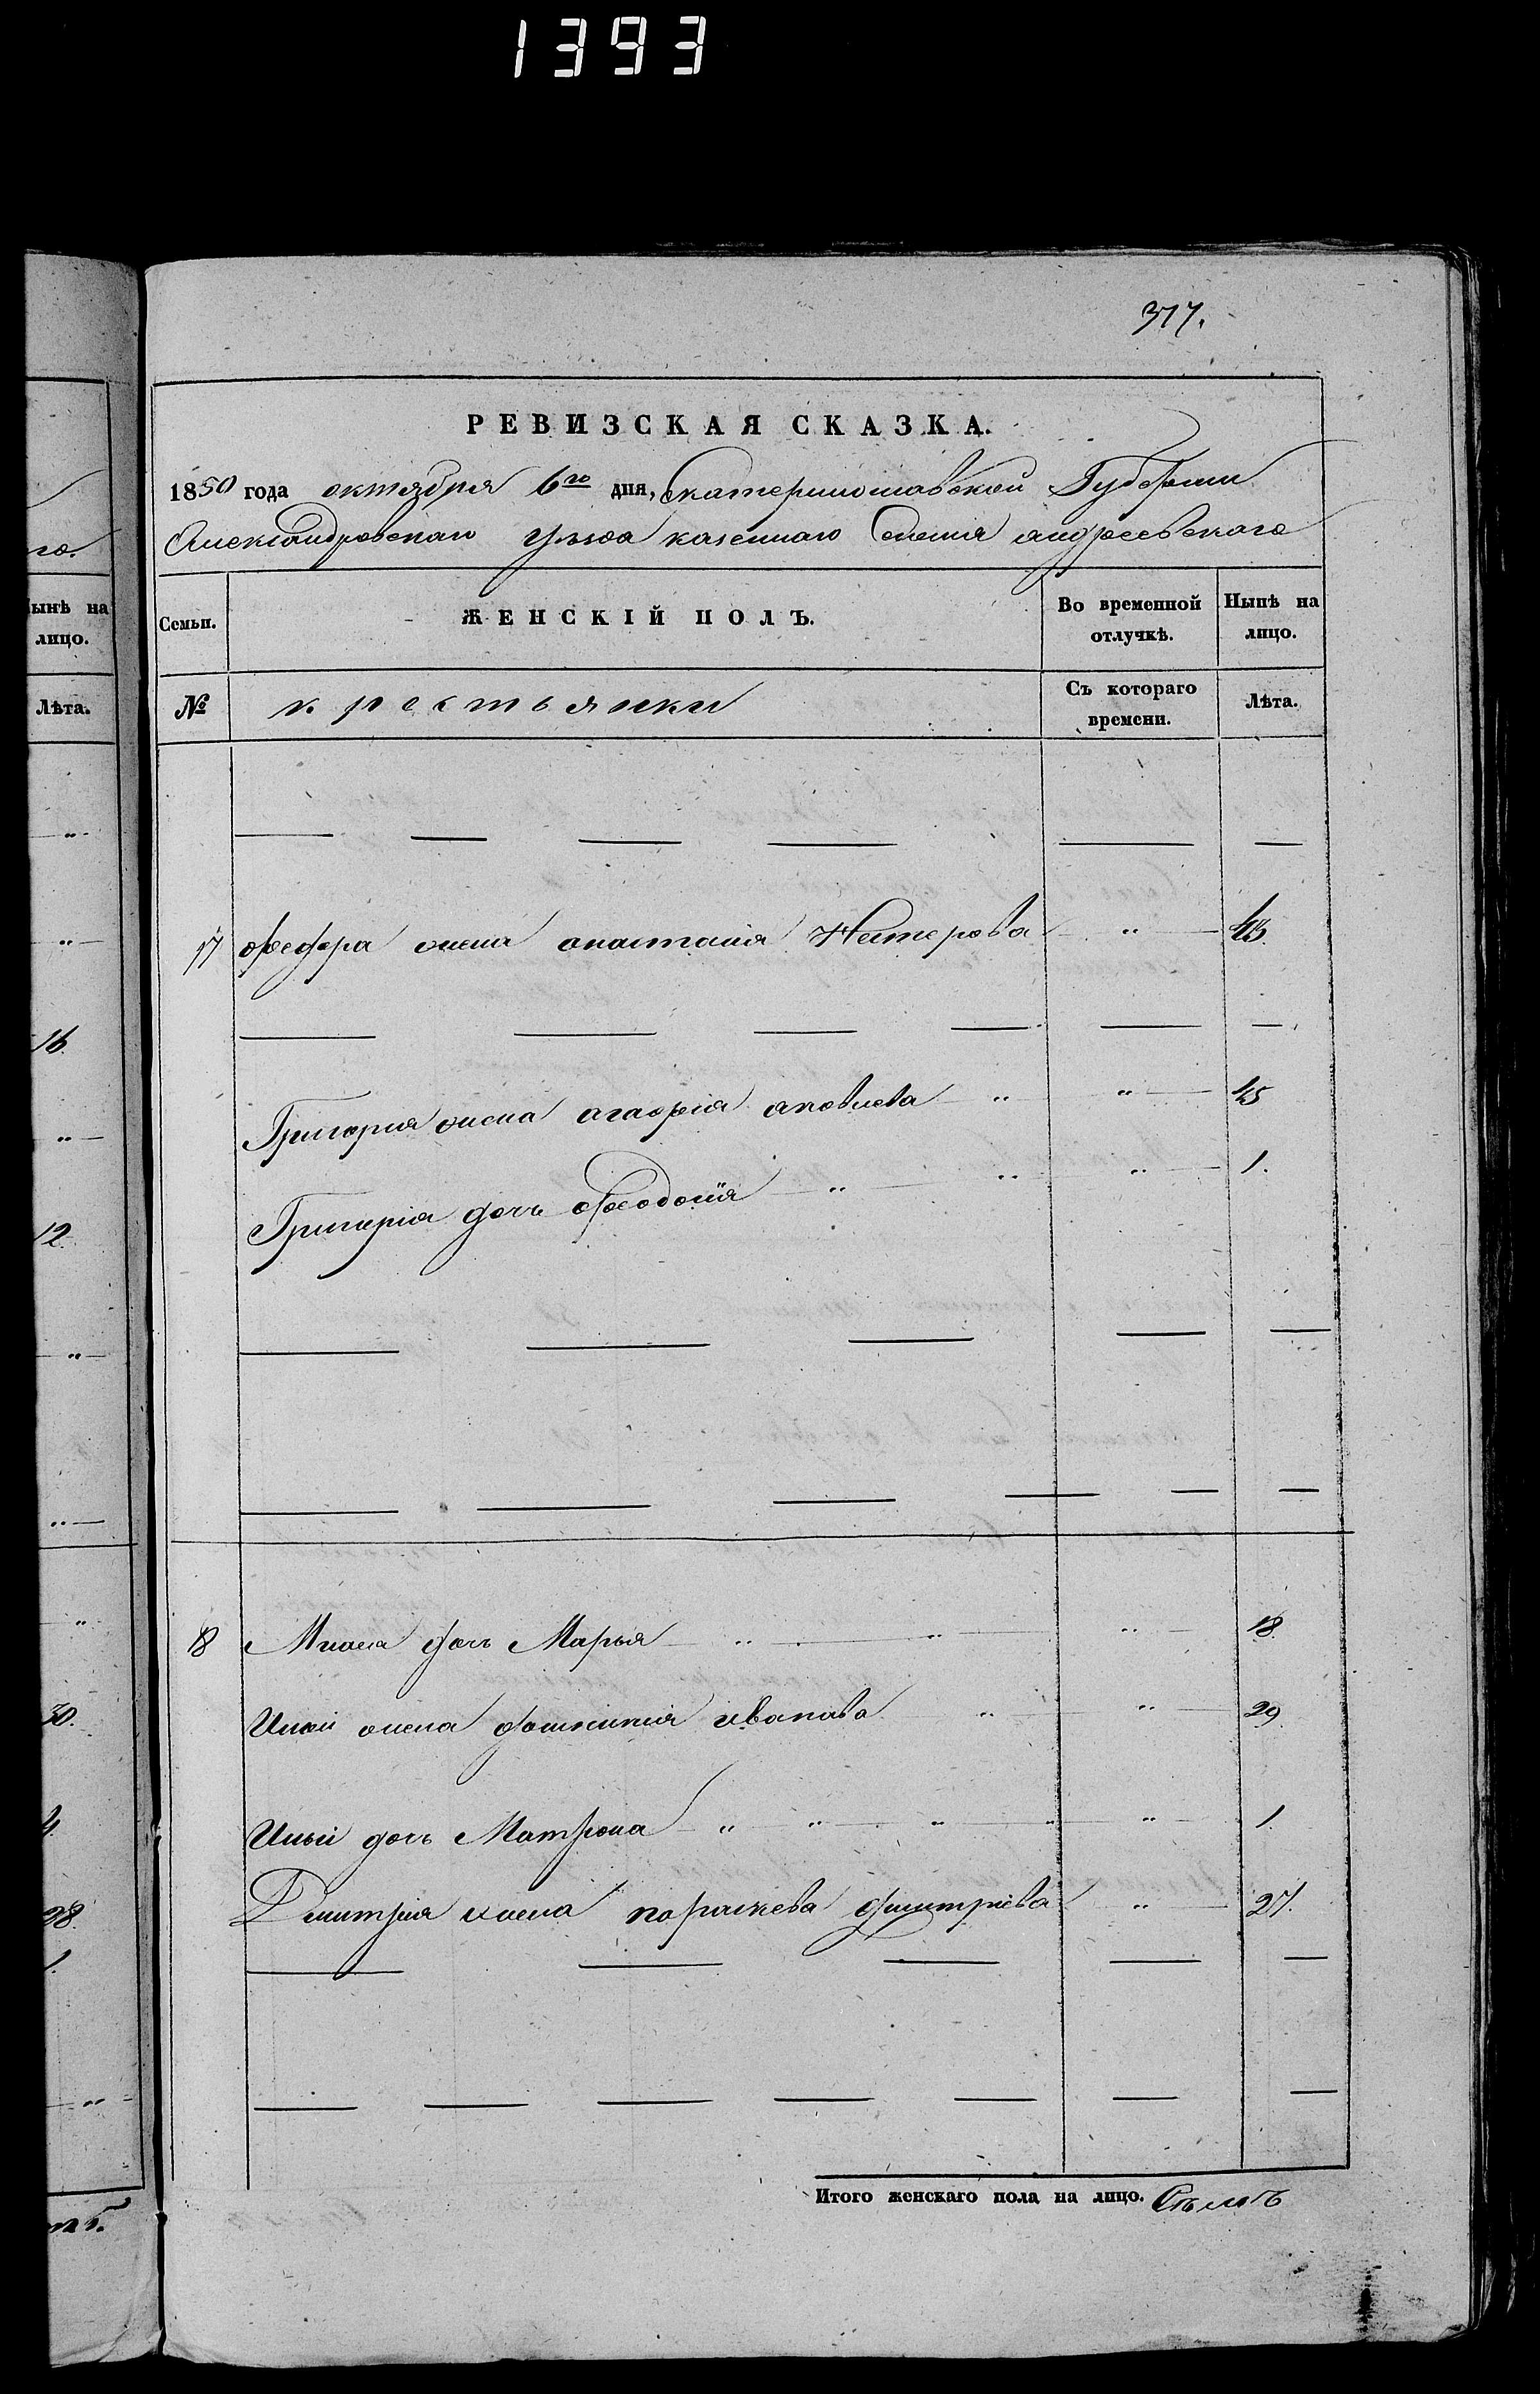 1393
317.
РЕВИЗСКАЯ СКАЗКА.
1850 года октября 6го дня, Екатеринославской Губернии
Александровскаго уезда казеннаго Селения андреевскаго
Семьи. ЖЕНСКІЙ ПОЛЪ. Во временной отлучкѣ. Нынѣ на лицо.
№ крестьянки Съ котораго времени. Лѣта.
17 Федора жена анастасия Нестерова " 43.
Григория жена агафия яковлева " " 45
Григория дочь Феодосия " " " 1.
18 дочь Марья " " " 18.
Ильи жена ивановa " " 29.
Ильи дочь Матрона " " " " " 1.
Дмитрия жена параскева дмитриева " 27.
Итого женскаго пола на лицо. Семь
го.
Нынѣ на
лицо.
Лѣта.
"
"
16.
"
12.
"
"
"
30.
4.
28.
1.
"